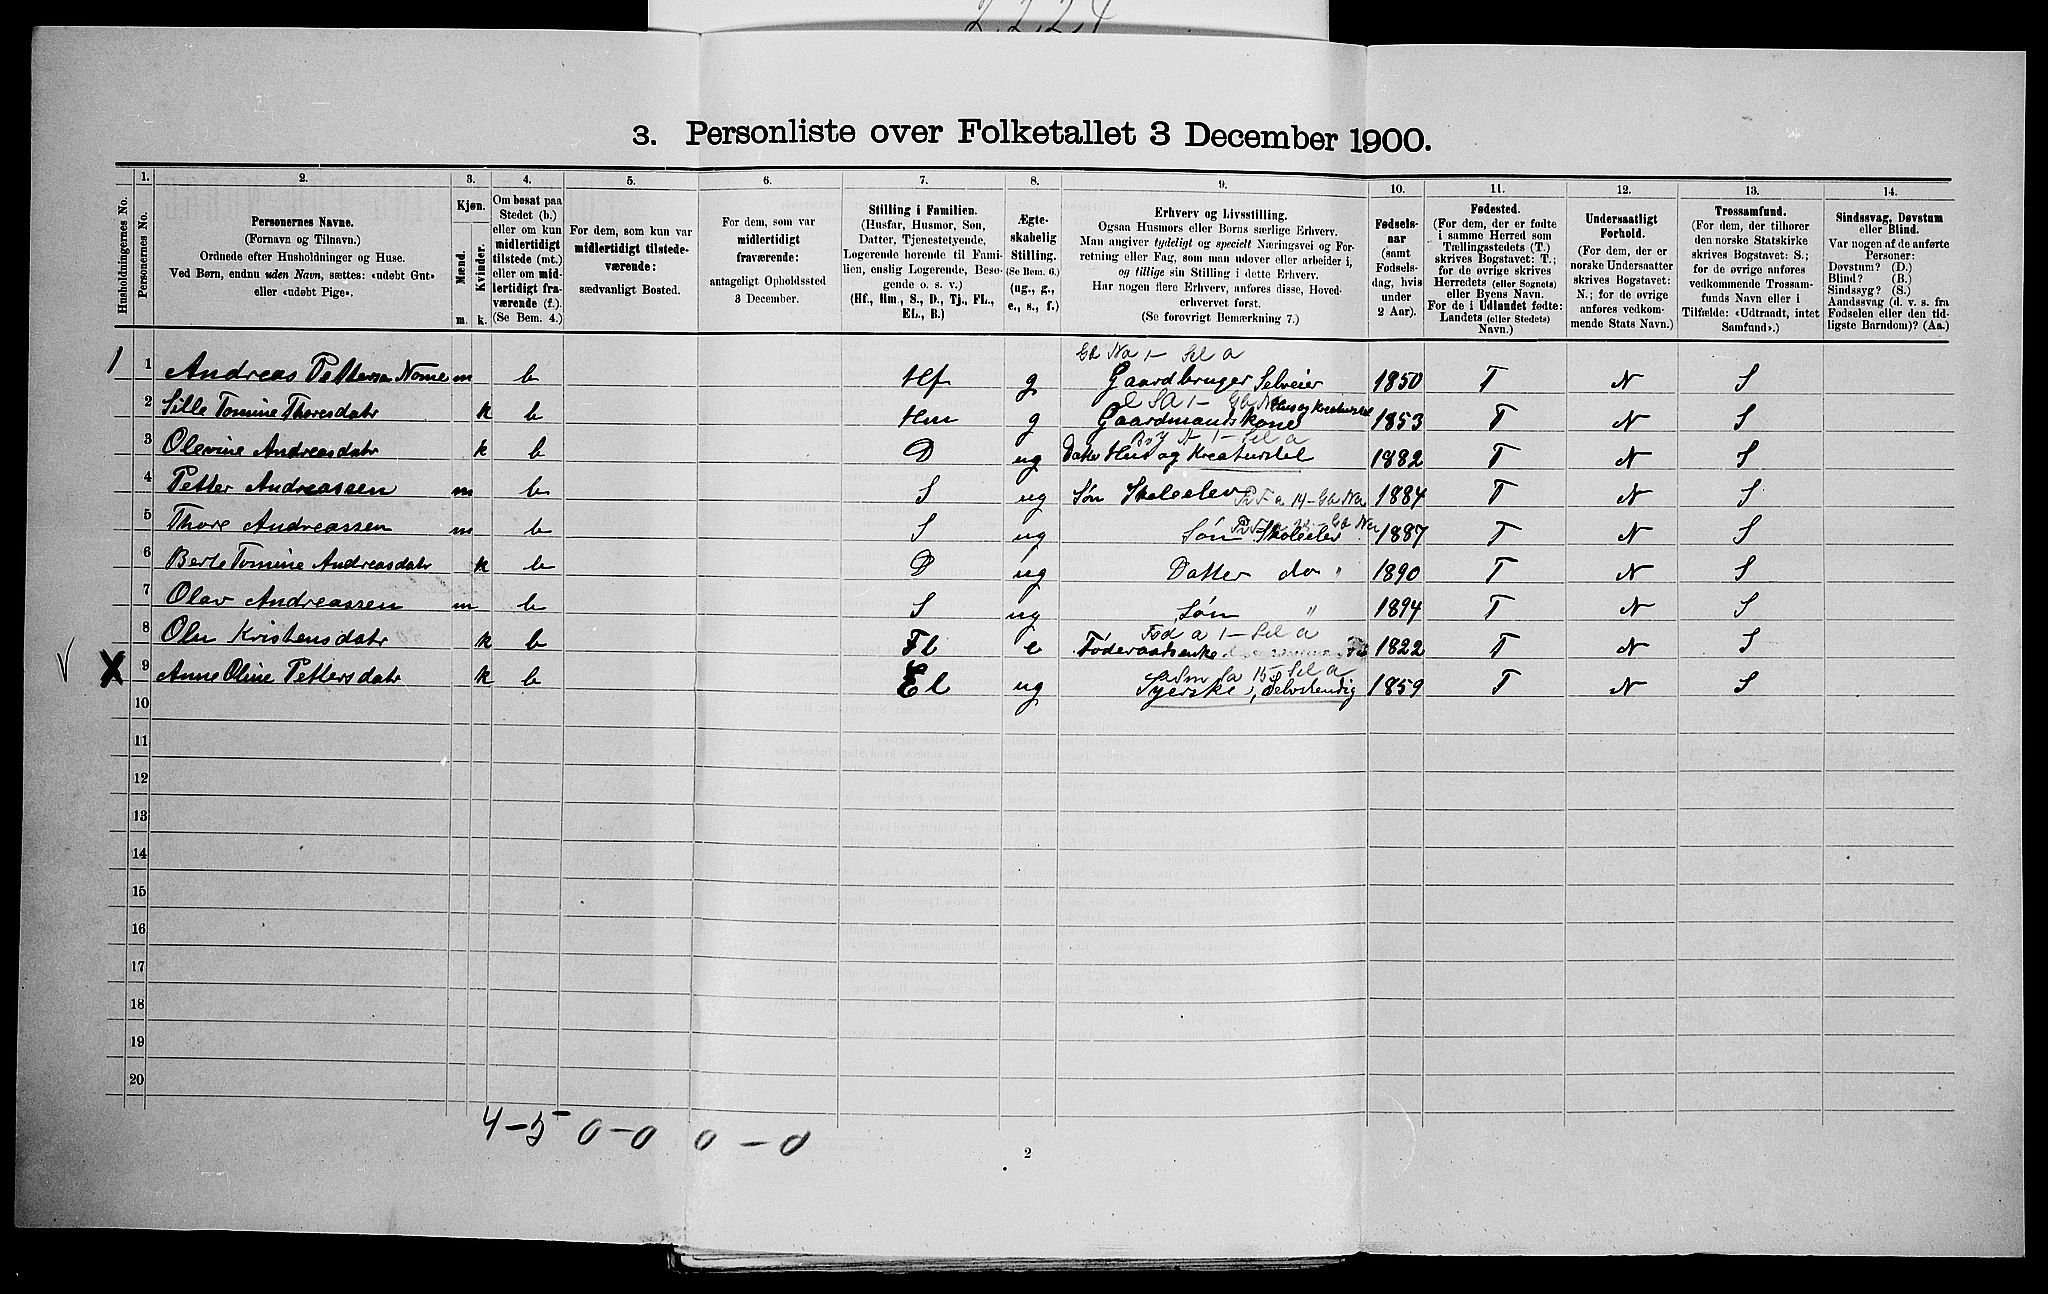 2 2 2 4
3. Personliste over Folketallet 3 December 1900.
Husholdningernes No.
1.
Personernes No.
2.
Personernes Navne.
(Fornavn og Tilnavn.)
Ordnede efter Husholdninger og Huse.
Ved Børn, endnu uden Navn, sættes: «udøbt Gut»
eller «udøbt Pige».
3.
Kjøn.
Mænd.
Kvinder.
m. k.
4.
Om bosat paa
Stedet (b.)
eller om kun
midlertidigt
tilstede (mt.)
eller om mid-
lertidigt fra-
værende (f.)
(Se Bem. 4.)
5.
For dem, som kun var
midlertidigt tilstede-
værende:
sædvanligt Bosted.
6.
For dem, som var
midlertidigt
fraværende:
antageligt Opholdssted
3 December.
7.
Stilling i Familien.
(Husfar, Husmor, Søn,
Datter, Tjenestetyende,
Logerende hørende til Fami-
lien, enslig Logerende, Besø-
gende o. s. v.)
(Hf., Hm., S., D., Tj., FL.,
EL., B.)
8.
Ægte-
skabelig
Stilling.
(Se Bem. 6.)
(ug., g.,
e., s., f.)
9.
Erhverv og Livsstilling.
Ogsaa Husmors eller Børns særlige Erhverv.
Man angiver tydeligt og specielt Næringsvei og For-
retning eller Fag, som man udøver eller arbeider i,
og tillige sin Stilling i dette Erhverv.
Har nogen flere Erhverv, anføres disse, Hoved-
erhvervet først.
(Se forøvrigt Bemærkning 7.)
10.
Fødsels-
aar
(samt
Fødsels-
dag, hvis
under
2 Aar).
11.
Fødested.
(For dem, der er fødte
i samme Herred som
Tællingsstedets (T.)
skrives Bogstavet: T.;
for de øvrige skrives
Herredets (eller Sognets)
eller Byens Navn.
For de i Udlandet fødte:
Landets (eller Stedets)
Navn.)
12.
Undersaatligt
Forhold.
(For dem, der er
norske Undersaatter
skrives Bogstavet:
N.; for de øvrige
anføres vedkom-
mende Stats Navn.)
13.
Trossamfund.
(For dem, der tilhører
den norske Statskirke
skrives Bogstavet: S.;
for de øvrige anføres
vedkommende Trossam-
funds Navn eller i
Tilfælde: «Udtraadt, intet
Samfund».)
14.
Sindssvag, Døvstum
eller Blind.
Var nogen af de anførte
Personer:
Døvstum? (D.)
Blind? (B.)
Sindssyg? (S.)
Aandssvag (d. v. s. fra
Fødselen eller den tid-
ligste Barndom)? (Aa.)
Gb Na 1 - Sel a
1 1 Andreas Pettersen Nome m b Hf g Gaardbruger Selveier 1850 T N S
2 Sille Tomine Thoresdatr k b Hm g Gaardmandskone Hus og Kreaturstel 1853 T N S
3 Olevine Andreasdatr k b D ug Datter Hus og Kreaturstel 1882 T N S
4 Petter Andreassen m b S ug Søn Skoleelev 1884 T N S
5 Thore Andreassen m b S ug Søn Skoleelev 1887 T N S
6 Berte Tomine Andreasdatr k b D ug Datter do " 1890 T N S
7 Olav Andreassen m b S ug Søn " 1894 T N S
Fød a 1 - Sel a
8 Olu Kristensdatr k b Fl e Føderaadsenke 1822 T N S
V X 9 Anne Oline Pettersdatr k b El ug Syerske, Selvstendig 1859 T N S
10
11
12
13
14
15
16
17
18
19
20
4 - 5 0 - 0 0 - 0
2